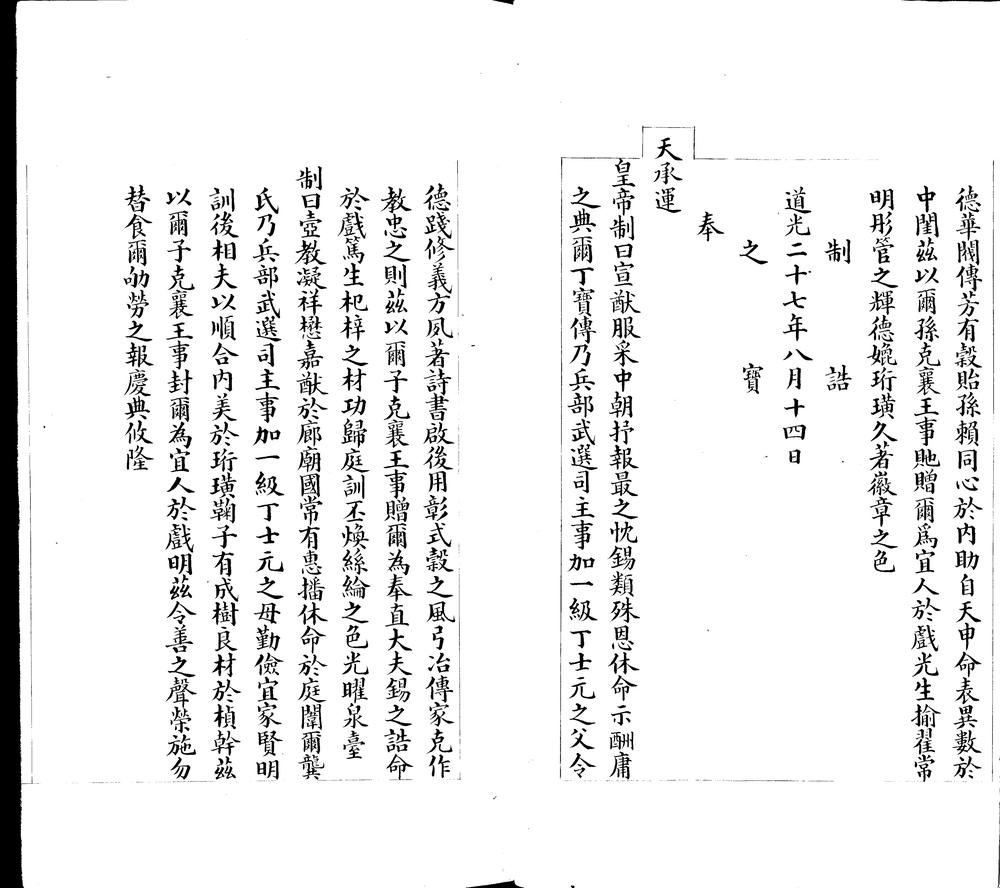 德華閥傳芳有穀貽孫賴同心於內助自天申命表異數於
中閨茲以爾孫克襄王事貤贈爾爲宜人於戲光生揄翟常
明彤管之輝德媲珩璜久著徽章之色
制 誥
道光二十七年八月十四日
之 寶
奉
天承運
皇帝制曰宣猷服采中朝抒報最之忱錫類殊恩休命示酬庸
之典爾丁寶傳乃兵部武選司主事加一級丁士元之父令
德踐修義方夙著詩書啟後用彰式穀之風弓冶傳家克作
教忠之則茲以爾子克襄王事贈爾為奉直大夫錫之誥命
於戲篤生杞梓之材功歸庭訓丕煥絲綸之色光曜泉臺
制曰壼教凝祥懋嘉猷於廊廟國常有惠播休命於庭闈爾龔
氏乃兵部武選司主事加一級丁士元之母勤儉宜家賢明
訓後相夫以順合內美於珩璜鞠子有成樹良材於楨幹茲
以爾子克襄王事封爾為宜人於戲明茲令善之聲榮施勿
替食爾劬勞之報慶典攸隆